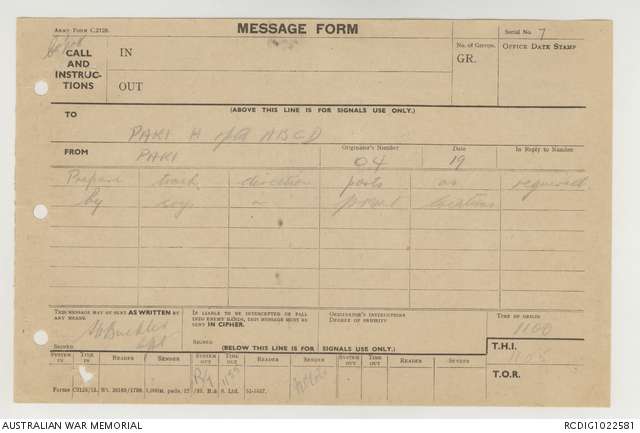 ARMY FORM C.2128.
MESSAGE FORM
Serial No. 7
CALL AND INSTRUCTIONS
IN
OUT
No. of Groups.
GR.
OFFICE DATE STAMP
(ABOVE THIS LINE IS FOR SIGNALS USE ONLY.)
TO
PAKI H ABCD
FROM
PAKI
Originator's Number
04
Date
19
In Reply to Number
Prepare track direction posts as required
by coys present locations
THIS MESSAGE MAY BE SENT AS WRITTEN BY ANY MEANS.
IF LIABLE TO BE INTERCEPTED OR FALL INTO ENEMY HANDS, THIS MESSAGE MUST BE SENT IN CIPHER.
ORIGINATOR'S INSTRUCTIONS
DEGREE OF PRIORITY
TIME OF ORIGIN
1100
SIGNED
Buckler
SIGNED
(BELOW THIS LINE IS FOR SIGNALS USE ONLY)
T.H.I.
T.O.R.
SYSTEM IN
TIME IN
READER
SENDER
SYSTEM OUT
TIME OUT
READER
SENDER
SYSTEM OUT
TIME OUT
READER
SENDER
AUSTRALIAN WAR MEMORIAL
RCDIG1022581